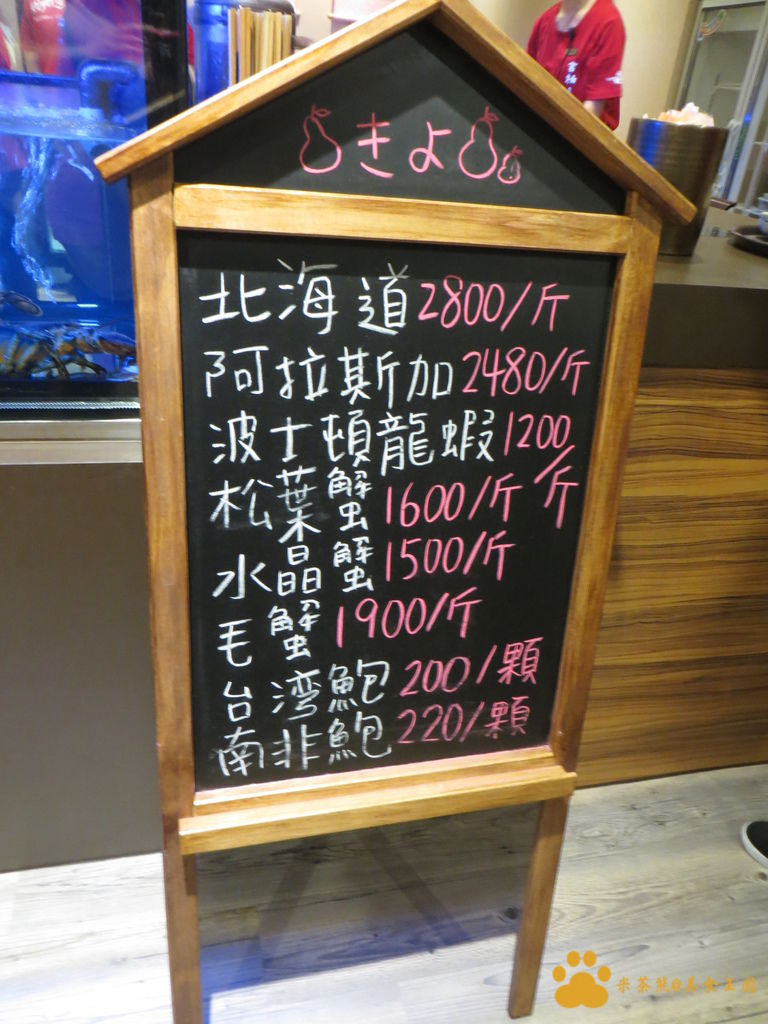 きよ
北海道2800/斤
阿拉斯加2480/斤
波士頓龍蝦1200/斤
松葉蟹1600/斤
水晶蟹1500/斤
毛蟹1900/斤
台湾鮑200/顆
南非鮑220/顆